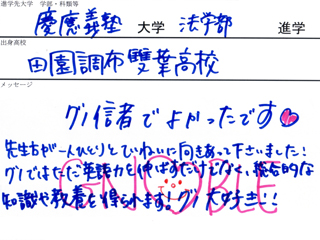 進学先大学 学部・科類等
慶應義塾 大学 法学部 進学
出身高校
田園調布雙葉高校
メッセージ
グノ信者でよかったです
先生方が一人ひとりとていねいに向きあって下さいました！
グノではただ英語力を伸ばすだけでなく、総合的な
知識や教養を得られます！グノ大好き！！
GNOBLE